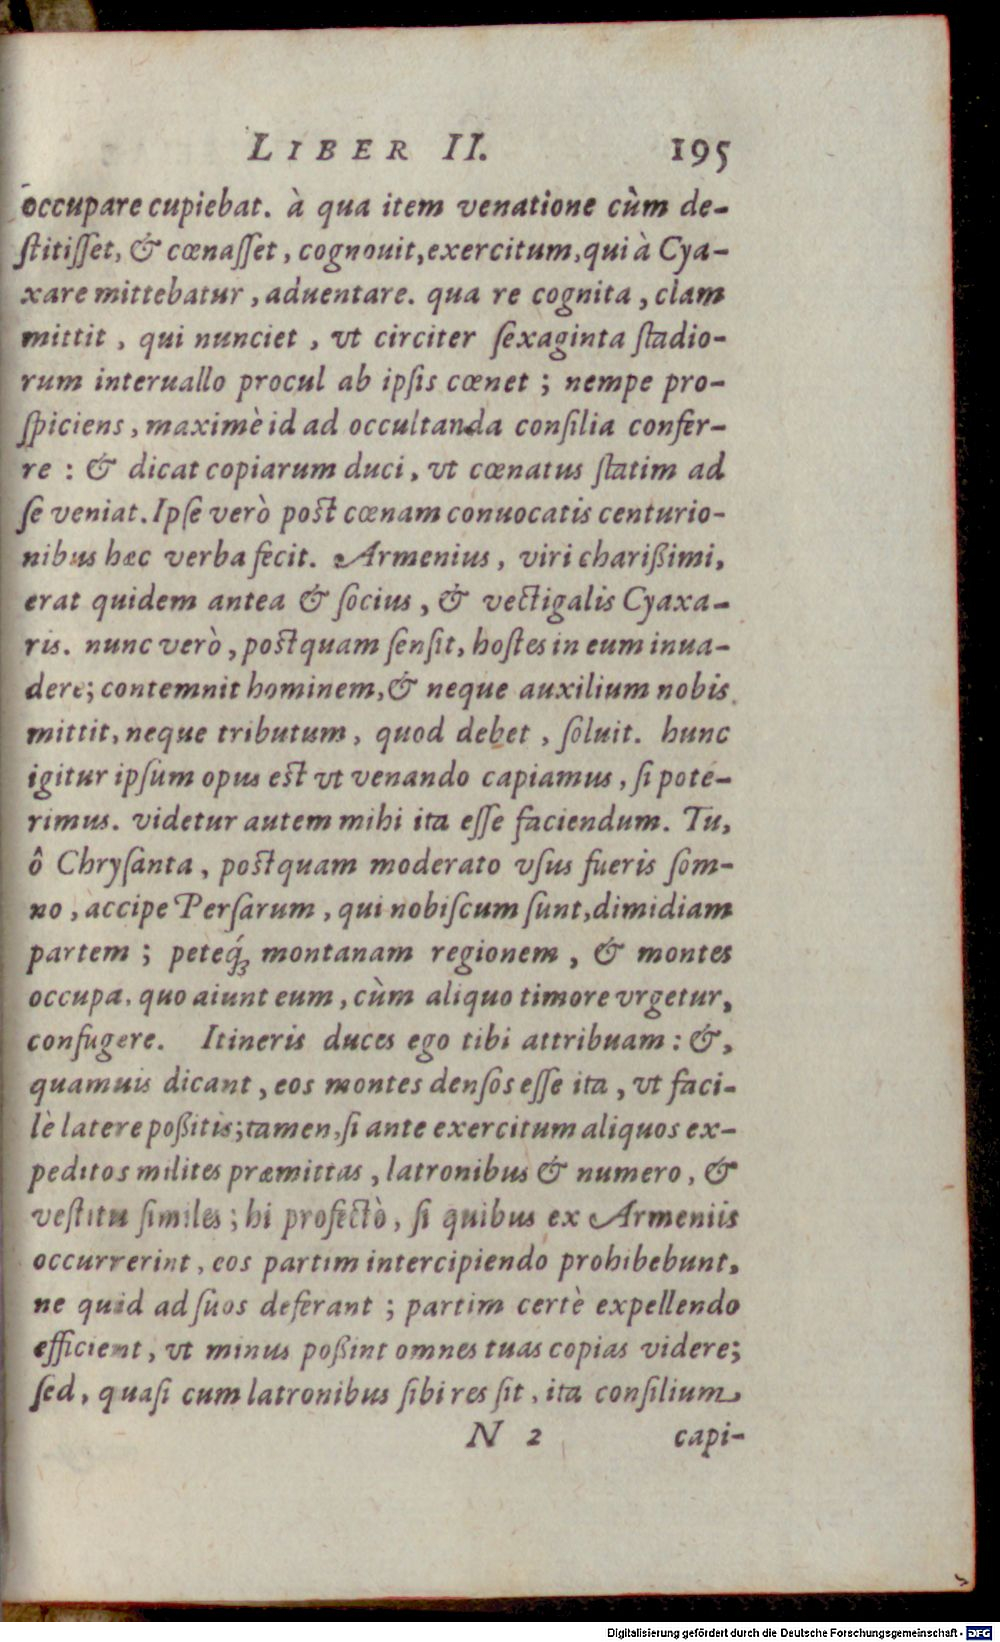 LIBER II. 195
occupare cupiebat. à qua item venatione cùm de-
ſtitiſſet, & cœnaſſet, cognouit, exercitum, qui à Cya-
xare mittebatur, aduentare. qua re cognita, clam
mittit, qui nunciet, vt circiter ſexaginta ſtadio-
rum interuallo procul ab ipſis cœnet; nempe pro-
ſpiciens, maximè id ad occultanda conſilia confer-
re: & dicat copiarum duci, vt cœnatus ſtatim ad
ſe veniat. Ipſe verò poſt cœnam conuocatis centurio-
nibus hæc verba fecit. Armenius, viri charißimi,
erat quidem antea & ſocius, & vectigalis Cyaxa-
ris. nunc verò, poſtquam ſenſit, hoſtes in eum inua-
dere; contemnit hominem, & neque auxilium nobis
mittit, neque tributum, quod debet, ſoluit. hunc
igitur ipſum opus eſt vt venando capiamus, ſi pote-
rimus. videtur autem mihi ita eſſe faciendum. Tu,
ô Chryſanta, poſtquam moderato vſus fueris ſom-
no, accipe Perſarum, qui nobiſcum ſunt, dimidiam
partem; peteq́ꝫ montanam regionem, & montes
occupa, quo aiunt eum, cùm aliquo timore vrgetur,
confugere. Itineris duces ego tibi attribuam: &,
quamuis dicant, eos montes denſos eſſe ita, vt faci-
lè latere poßitis; tamen, ſi ante exercitum aliquos ex-
peditos milites præmittas, latronibus & numero, &
veſtitu ſimiles; hi profectò, ſi quibus ex Armeniis
occurrerint, eos partim intercipiendo prohibebunt,
ne quid ad ſuos deferant; partim certè expellendo
efficient, vt minus poßint omnes tuas copias videre;
ſed, quaſi cum latronibus ſibi res ſit, ita conſilium
N 2 capi-
Digitalisierung gefördert durch die Deutsche Forschungsgemeinschaft - DFG